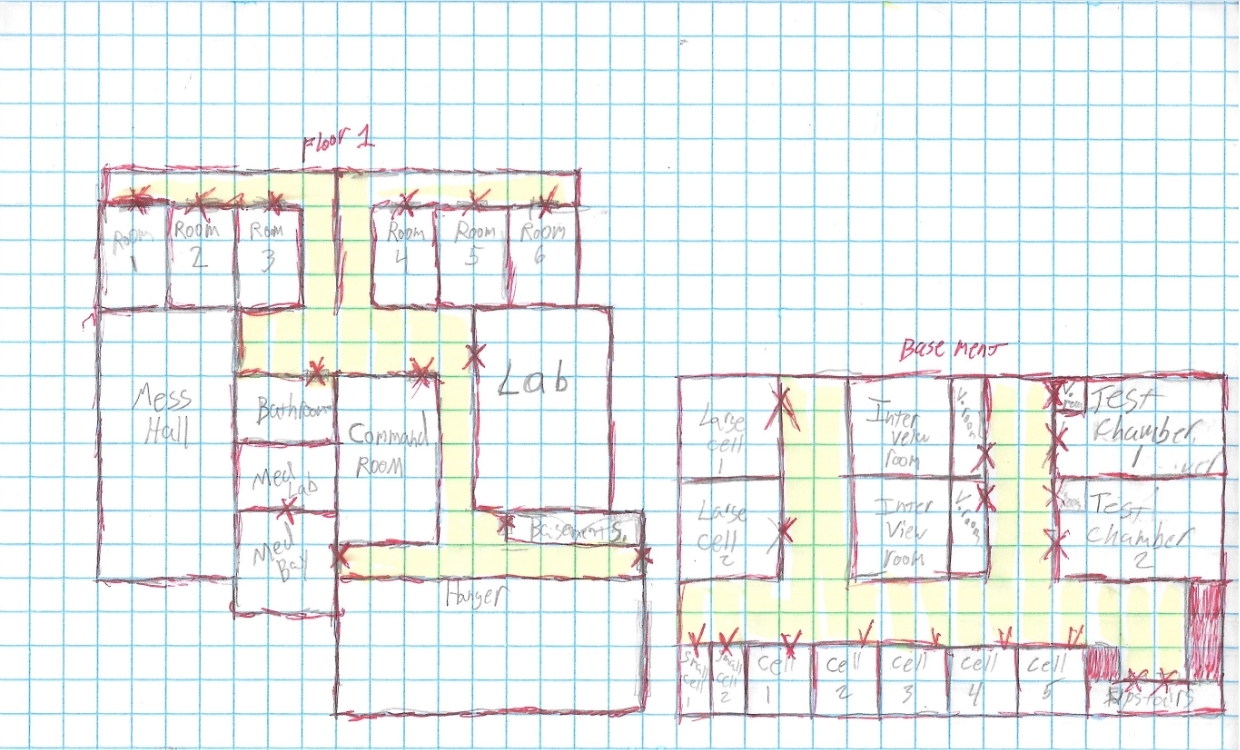 Floor 1
Room
1
Room
2
Room
3
Room
4
Room
5
Room
6
Mess
Hall
Bathroom
Med
Lab
Med
Bay
Command
ROOM
Lab
Basement S.
Hanger
Basement
Large
cell
1
Large
cell
2
Inter
view
room
V. room
Inter
View
room
V. room
V.
room
Test
Chamber
1
Test
Chamber
2
Small
cell
1
Small
cell
2
Cell
1
Cell
2
Cell
3
Cell
4
Cell
5
upstairs